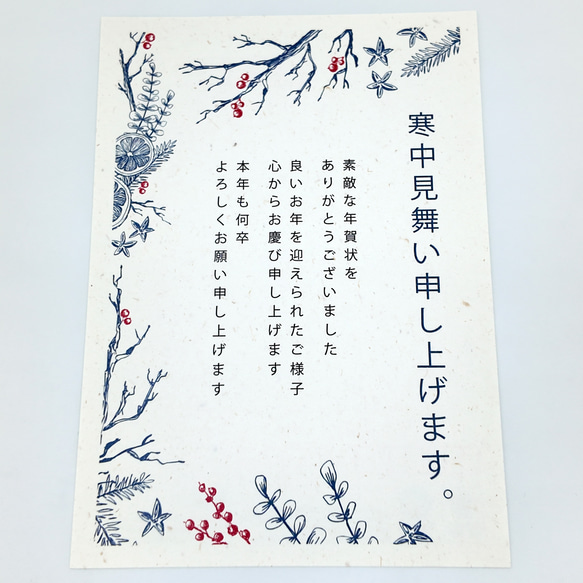 寒中見舞い申し上げます。
素敵な年賀状を
ありがとうございました
良いお年を迎えられたご様子
心からお慶び申し上げます
本年も何卒
よろしくお願い申し上げます